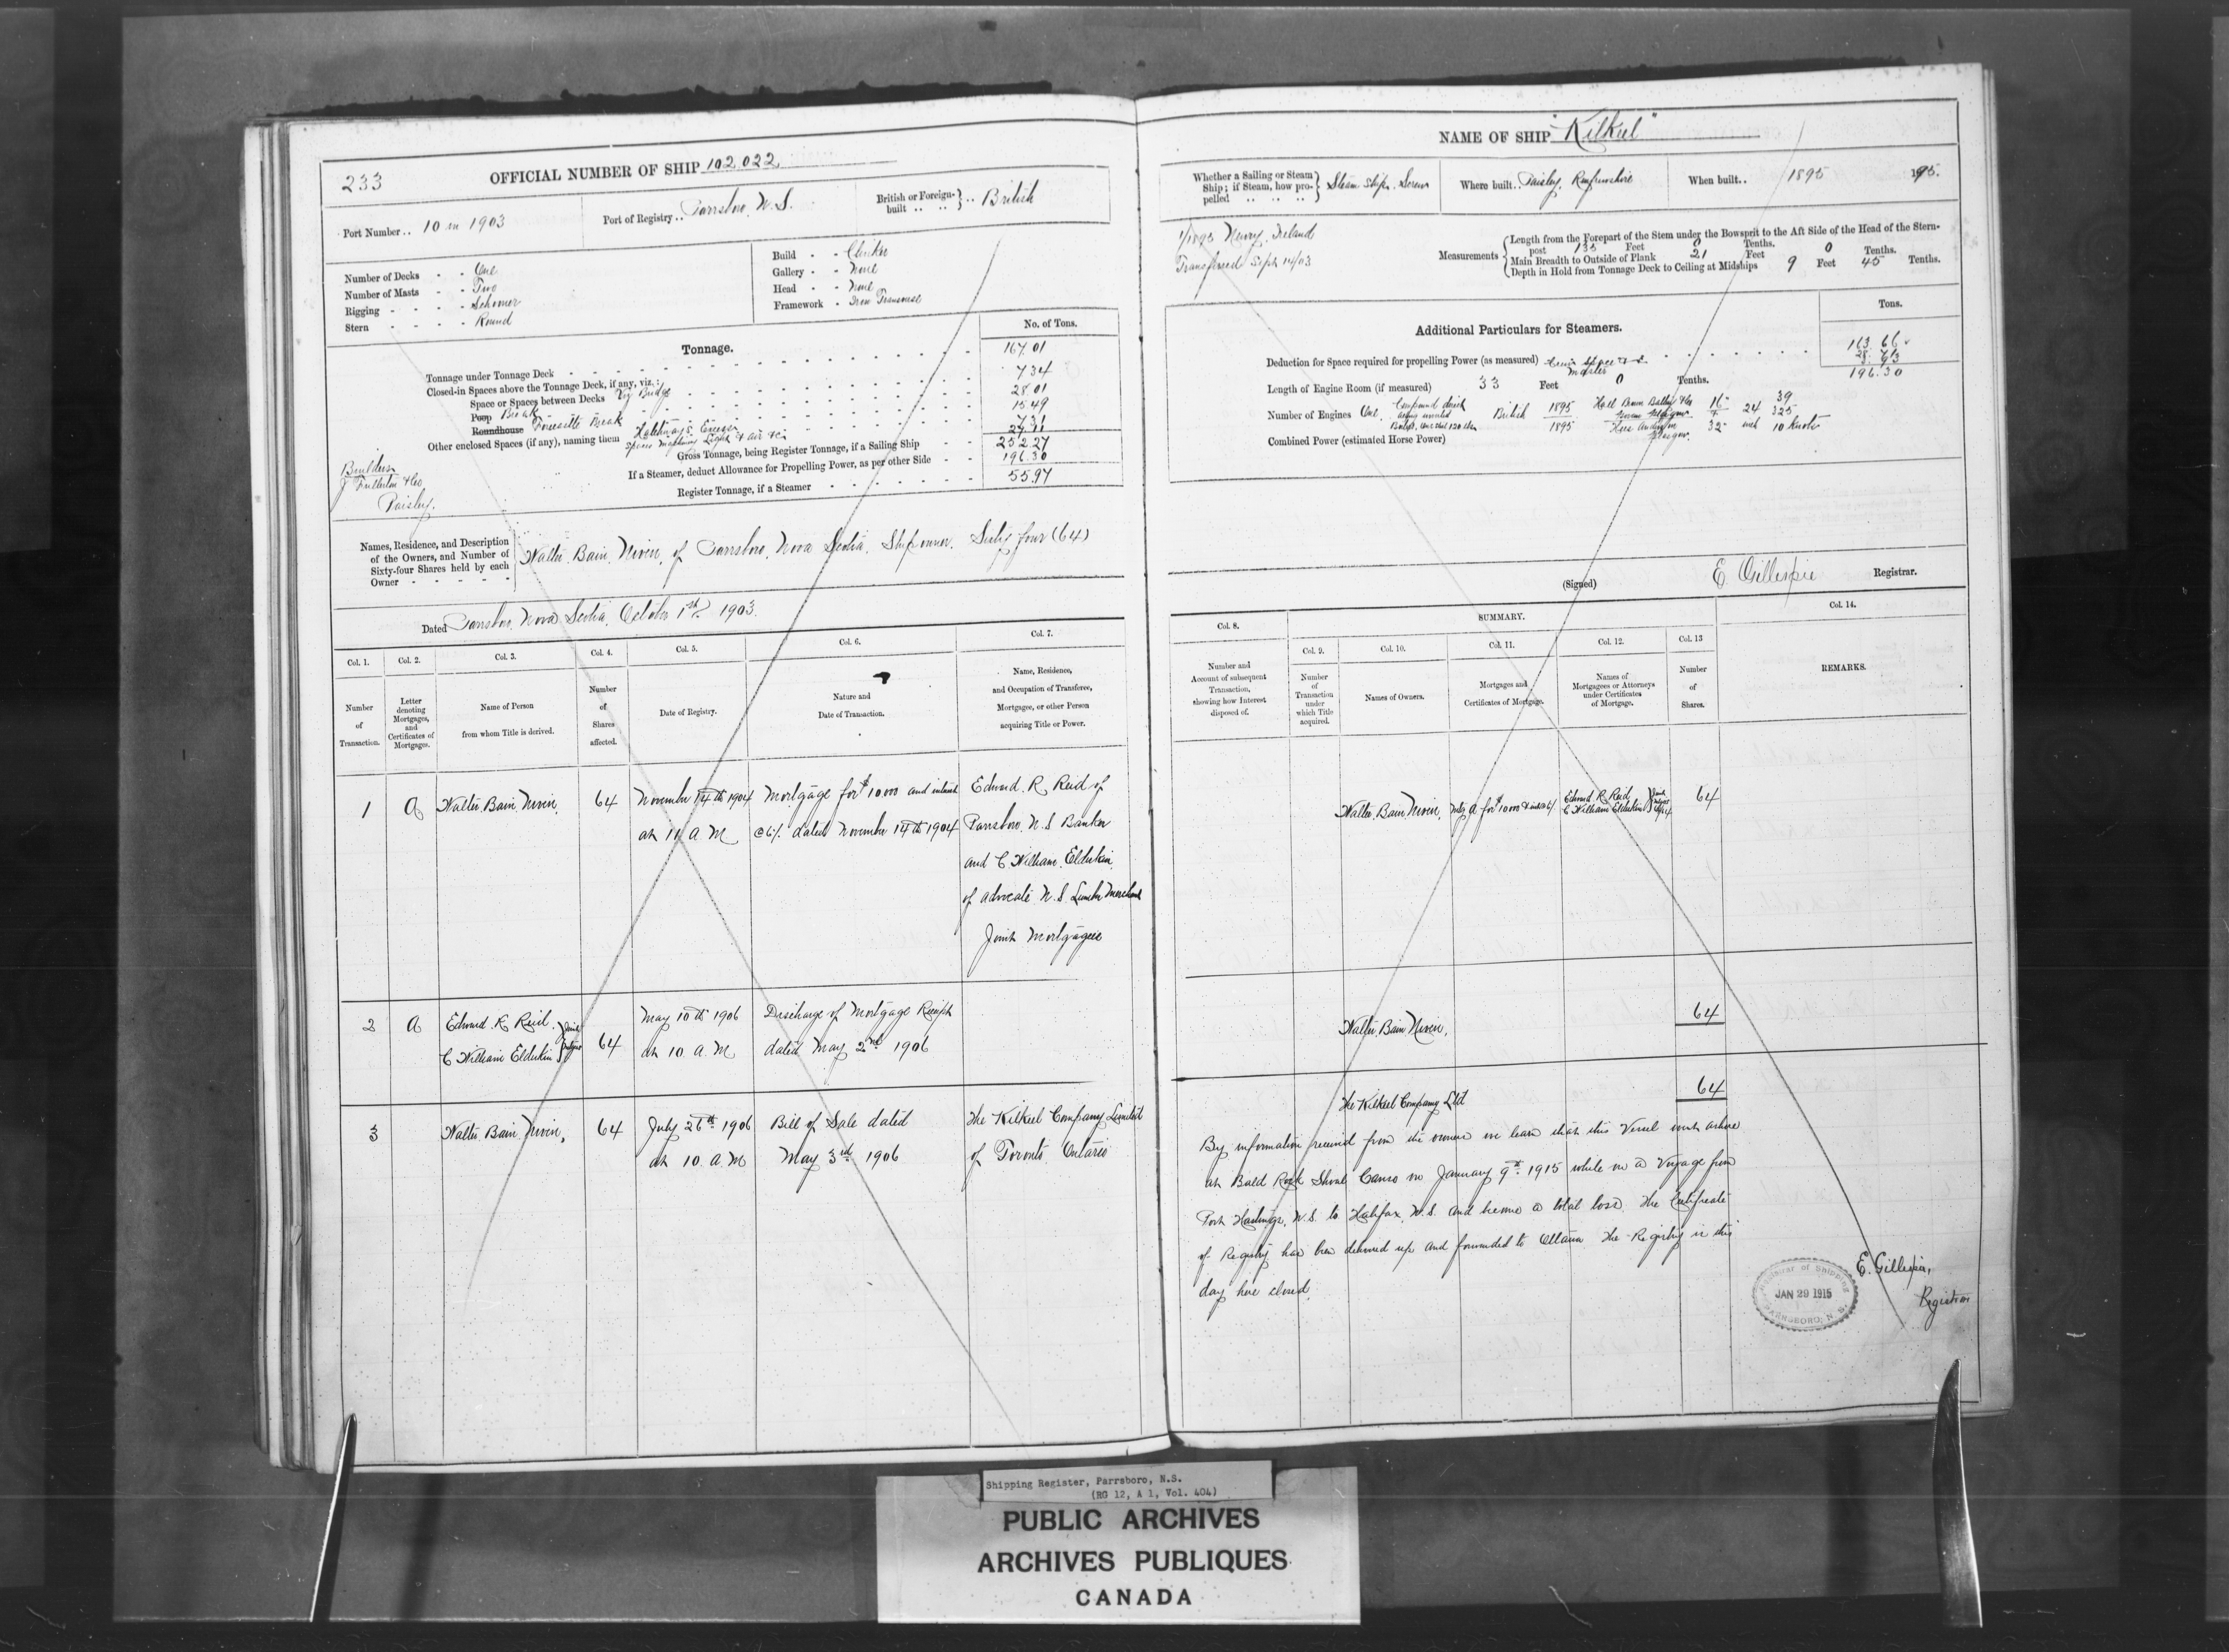 233
OFFICIAL NUMBER OF SHIP 102,022
Port Number.. 10 in 1903
Port of Registry.. Parrsboro, N.S.
British or Foreign-built .. .. } .. British
Number of Decks - - One
Number of Masts - - Two
Rigging - - - - Schooner
Stern - - - - Round
Build - - Clinker
Gallery - - None
Head - - None
Framework - Iron Transverse
Tonnage.
No. of Tons.
Tonnage under Tonnage Deck 167.01
Closed-in Spaces above the Tonnage Deck, if any, viz.:
Space or Spaces between Decks Bridge 7.34
Poop Break 28.01
Roundhouse Forecastle Break 15.49
Other enclosed Spaces (if any), naming them Hatchways Excess 7.31
Spaces Light & air &c 27.11
Gross Tonnage, being Register Tonnage, if a Sailing Ship 252.27
If a Steamer, deduct Allowance for Propelling Power, as per other Side 196.30
Register Tonnage, if a Steamer 55.97
Builders
J Fullerton & Co
Paisley.
Names, Residence, and Description
of the Owners, and Number of
Sixty-four Shares held by each
Owner
Walter Bain Niven, of Parrsboro, Nova Scotia, Ship owner. Sixty four (64)
Dated Parrsboro, Nova Scotia, October 1st 1903.
Col. 1. Col. 2. Col. 3. Col. 4. Col. 5. Col. 6. Col. 7.
Number of Transaction.
Letter denoting Mortgages, and Certificates of Mortgage.
Name of Person from whom Title is derived.
Number of Shares affected.
Date of Registry.
Nature and Date of Transaction.
Name, Residence, and Occupation of Transferee, Mortgagee, or other Person acquiring Title or Power.
1 A Walter Bain Niven, 64 November 14th 1904 Mortgage for $1000 and interest Edward R Reid of
at 11 A M @6% dated November 14th 1904 Parrsboro, N.S. Banker
and C William Elderkin
of Advocate N.S. Lumber Merchant
Joint Mortgagees
2 A Edward R Reid May 10th 1906 Discharge of Mortgage Receipt
C William Elderkin } Joint Mtgees 64 at 10 A.M dated May 2nd 1906
3 Walter Bain Niven, 64 July 26th 1906 Bill of Sale dated The Kilkeel Company Limited
at 10 A.M May 3rd 1906 of Toronto Ontario
NAME OF SHIP "Kilkeel"
Whether a Sailing or Steam Ship; if Steam, how propelled } Steam Ship, Screw
Where built.. Paisley, Renfrewshire
When built.. 1895
1/1895 Newry, Ireland
Transferred Sept 14/03
Measurements
Length from the Forepart of the Stem under the Bowsprit to the Aft Side of the Head of the Stern-
post 135 Feet 0 Tenths.
Main Breadth to Outside of Plank 21 Feet 0 Tenths.
Depth in Hold from Tonnage Deck to Ceiling at Midships 9 Feet 45 Tenths.
Additional Particulars for Steamers.
Tons.
Deduction for Space required for propelling Power (as measured) 163.66
Crew Space & Master
196.30
Length of Engine Room (if measured) 33 Feet 0 Tenths.
Number of Engines One British 1895 16 24 39
1895 32 inch 10 Knots
Glasgow.
Combined Power (estimated Horse Power)
(Signed) E. Gillespie Registrar.
SUMMARY.
Col. 8. Col. 9. Col. 10. Col. 11. Col. 12. Col. 13 Col. 14.
Number and Account of subsequent Transaction, showing how Interest disposed of.
Number of Transaction under which Title acquired.
Names of Owners.
Mortgages and Certificates of Mortgage.
Names of Mortgagees or Attorneys under Certificates of Mortgage.
Number of Shares.
REMARKS.
Walter Bain Niven, Mtg A for $1000 Edward R Reid 64
C William Elderkin
Walter Bain Niven, 64
The Kilkeel Company Ltd 64
By information received from the owners we learn that this Vessel went ashore
at Bald Rock Shoal Canso on January 9th 1915 while on a Voyage from
Port Hastings, N.S. to Halifax, N.S. and became a total loss. The Certificate
of Registry has been delivered up and forwarded to Ottawa. The Registry is this
day here closed.
E. Gillespie,
Registrar
Registrar of Shipping
JAN 29 1915
PARRSBORO, N.S.
Shipping Register, Parrsboro, N.S.
(RG 12, A 1, Vol. 404)
PUBLIC ARCHIVES
ARCHIVES PUBLIQUES
CANADA